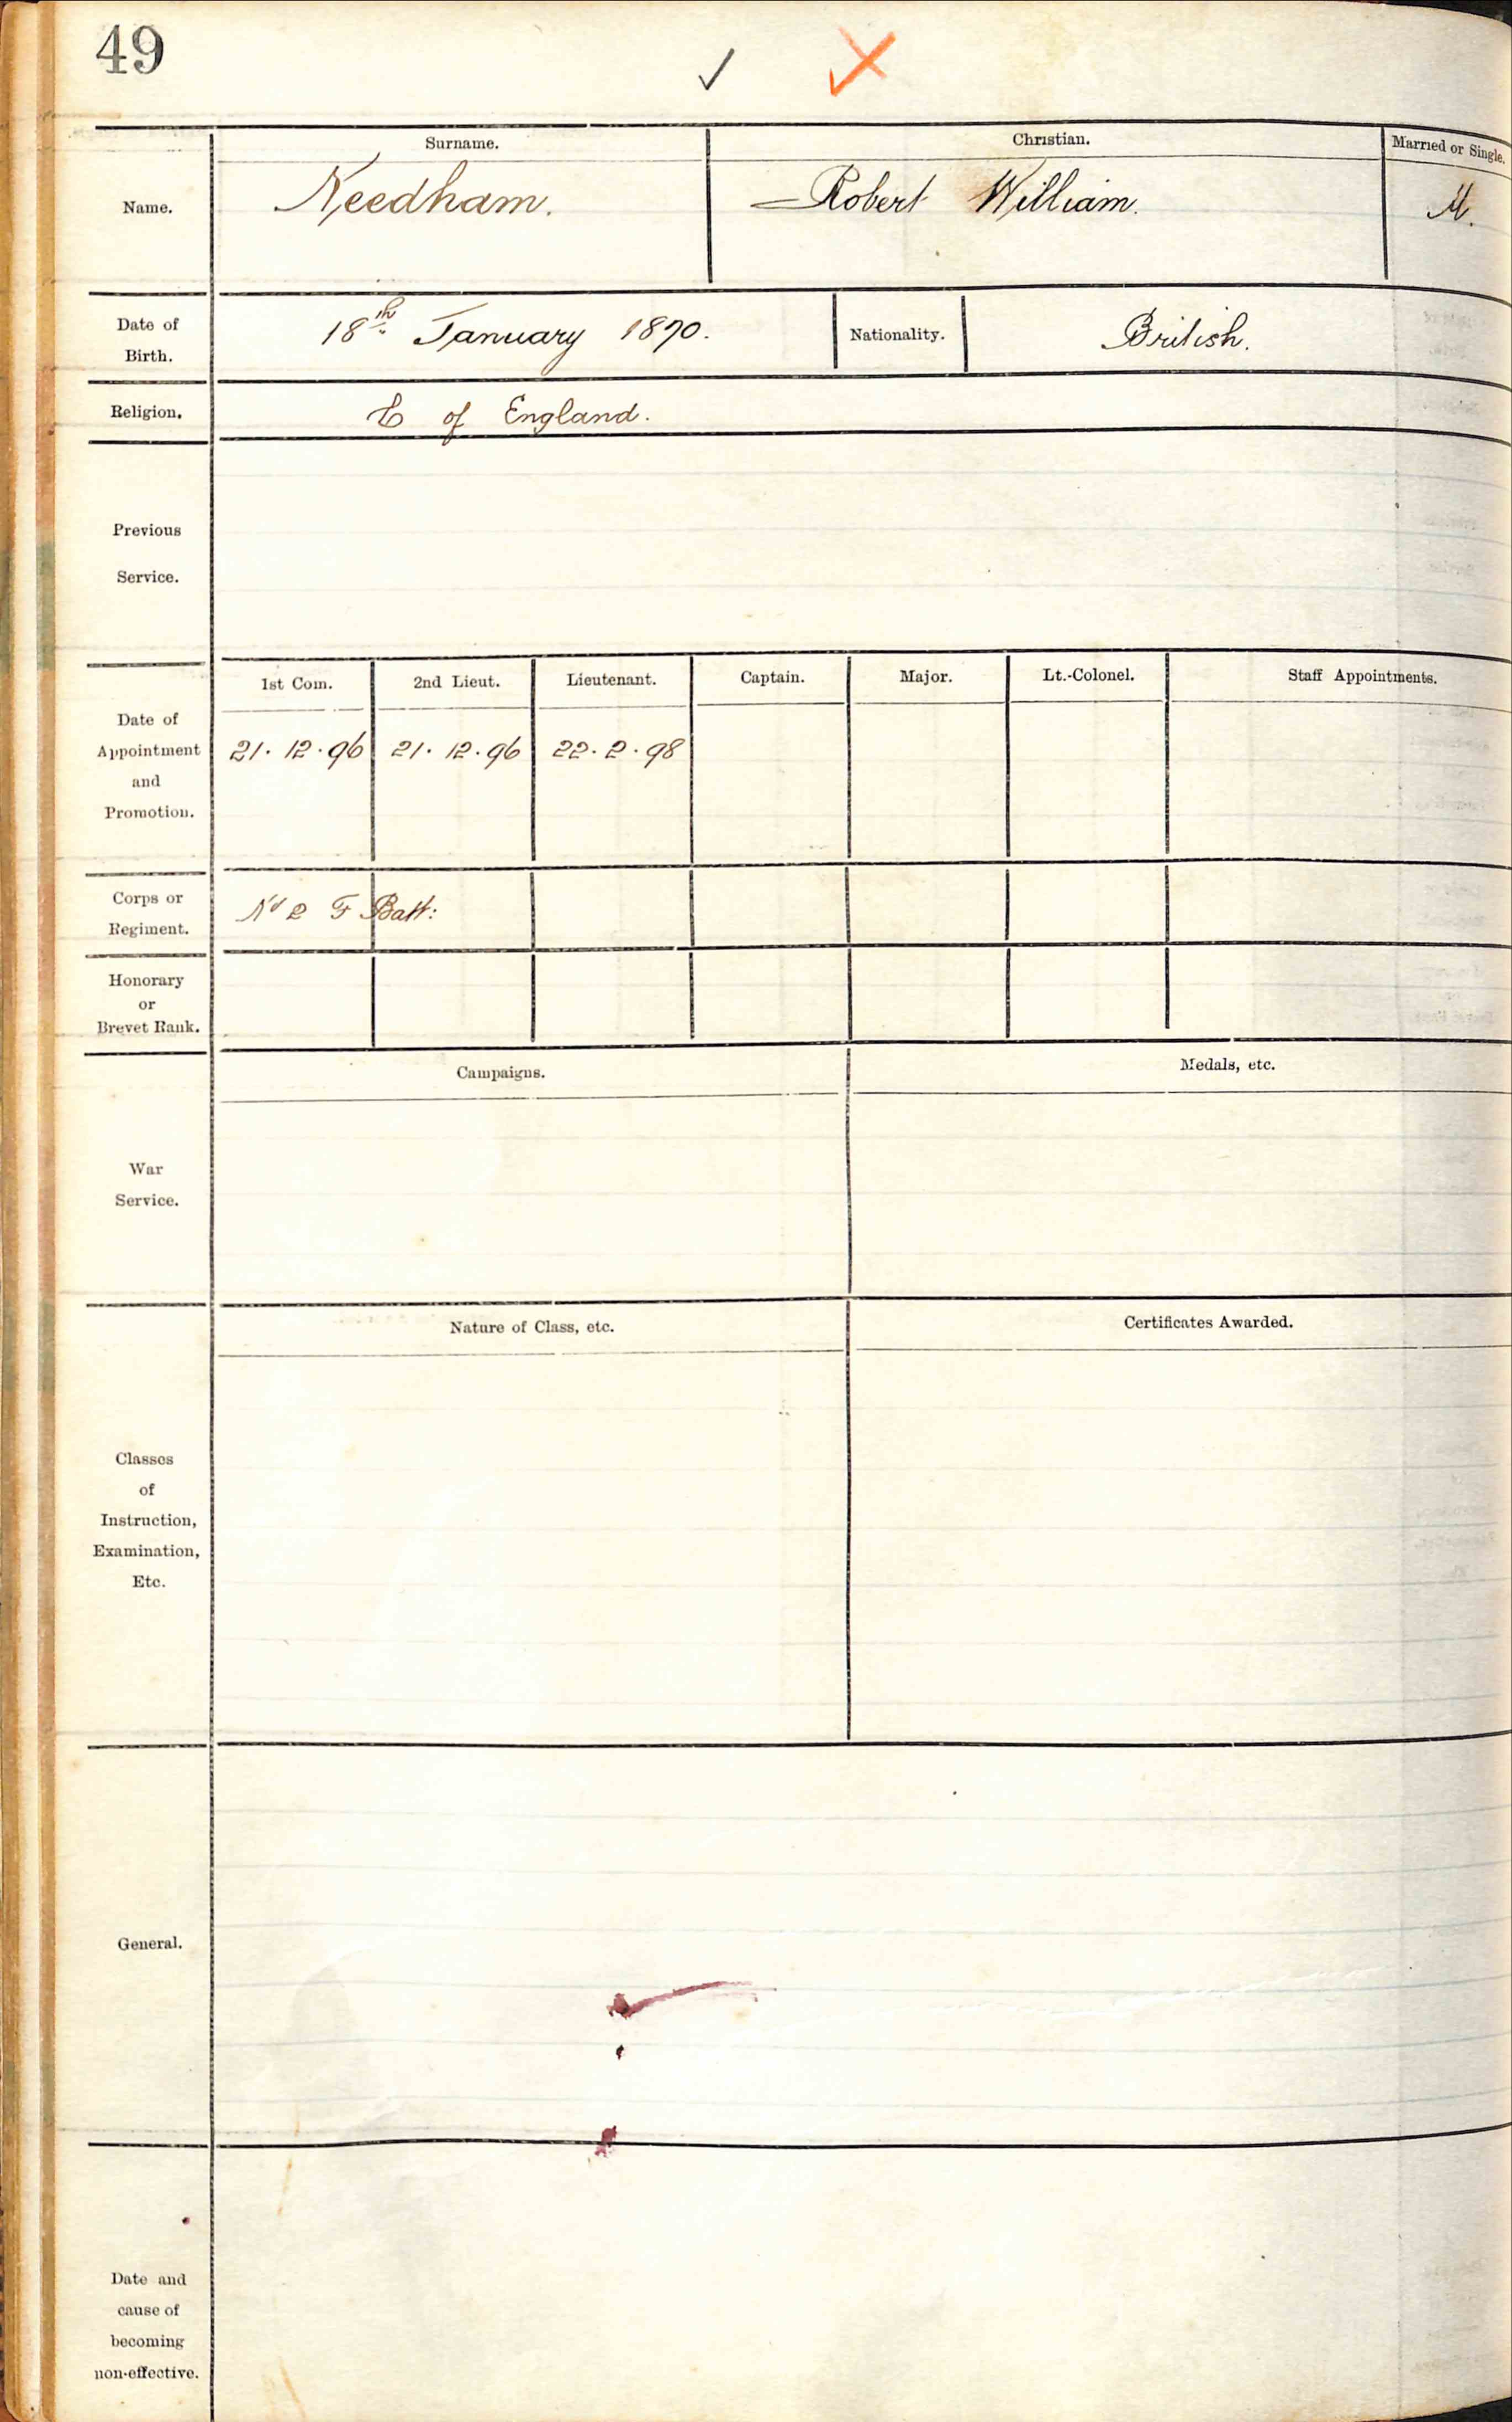 49
Surname. Christian. Married or Single.
Name. Needham. Robert William. M.
Date of Birth. 18th January 1870. Nationality. British.
Religion. C of England.
Previous
Service.
1st Com. 2nd Lieut. Lieutenant. Captain. Major. Lt.-Colonel. Staff Appointments.
Date of
Appointment 21. 12. 96 21. 12. 96 22. 2. 98
and
Promotion.
Corps or
Regiment. No 2 F Batt:
Honorary
or
Brevet Rank.
Campaigns. Medals, etc.
War
Service.
Nature of Class, etc. Certificates Awarded.
Classes
of
Instruction,
Examination,
Etc.
General.
Date and
cause of
becoming
non-effective.